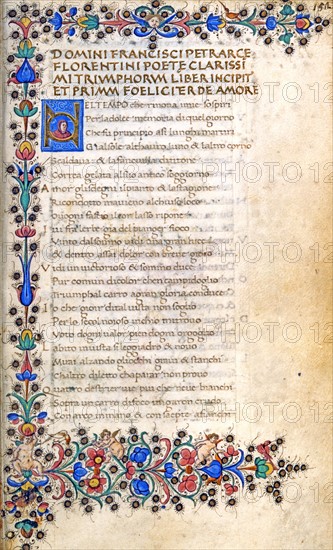 DOMINI FRANCISCI PETRARCE
FLORENTINI POETE CLARISSI
MI TRIVMPHORVM LIBER INCIPIT
ET PRIMVM FOELICITER DE AMORE
NEL TEMPO che rinova imie sospiri
Per la dolce memoria di quel giorno
Che fu principio asi lunghi martiri
Scaldava
Correa gelata al suo antico soggiorno
Amor gli sdegni il pianto e la stagione
Ricondotto maveno al chiuso loco
Ovogni fascio il cor lasso ripone
Ivi fra lerbe gia del pianger fioco
Vinto dal sonno
& dentro assai dolor con breve gioco
Vidi un victorioso & sommo duce
Pur comun di color chen campidoglio
Triumphal carro a gran gloria conduce
Io che gioir di tal vista non soglio
Per lo secol noioso
Voto dogni valor pien dogni orgoglio
Labito
Mirai alzando gliocchi gravi & stanchi
Chaltro dilecto chaparar non provo
Quatro destrier vie piu che neve bianchi
Sopra un carro di foco un garzon crudo
Con arco in mano & con saepte afianchi